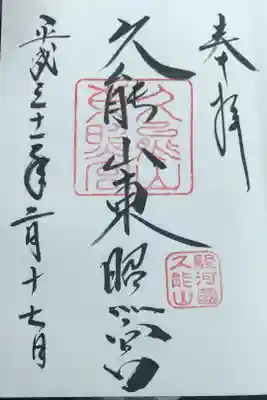 奉拝
久能山東照宮
久能山東照宮
駿河國久能山
平成三十一年二月十七日